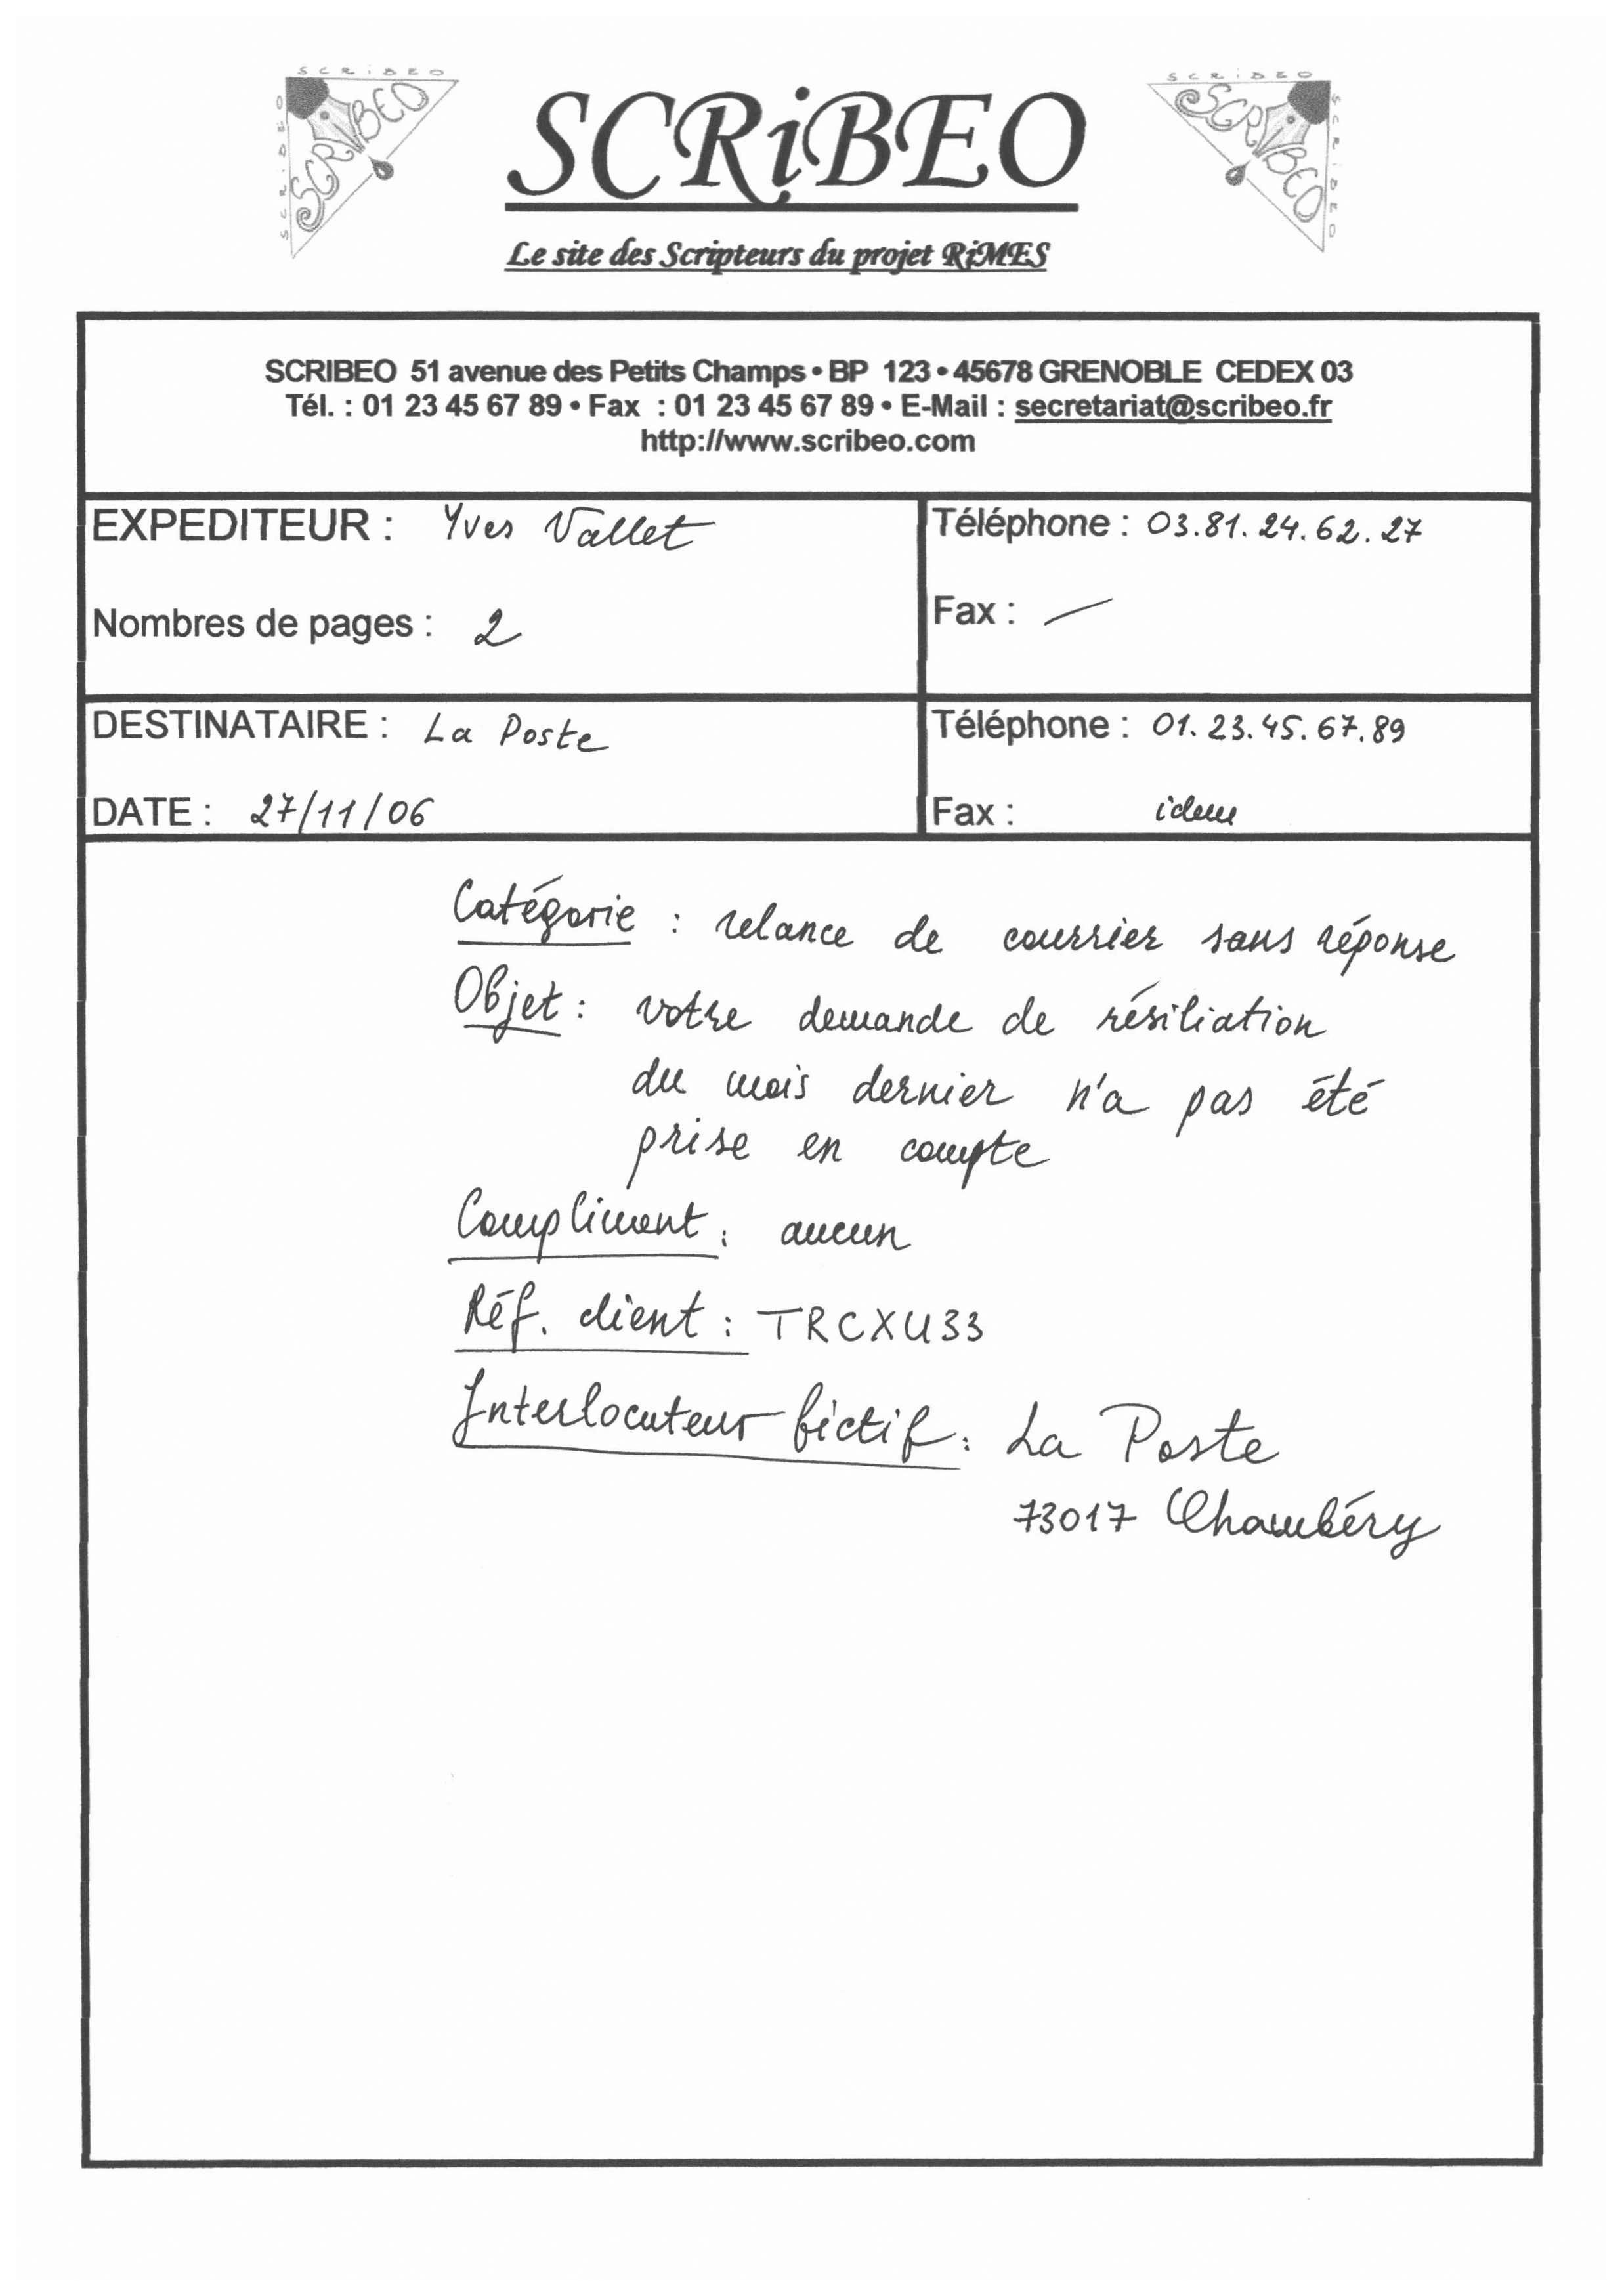 SCRiBEO
SCRiBEO
SCRiBEO
Le site des Scripteurs du projet RiMES
SCRIBEO 51 avenue des Petits Champs • BP 123 • 45678 GRENOBLE CEDEX 03
Tél. : 01 23 45 67 89 • Fax : 01 23 45 67 89 • E-Mail : secretariat@scribeo.fr
http://www.scribeo.com
EXPEDITEUR : Yves Vallet
Téléphone : 03.81.24.62.27
Nombres de pages : 2
Fax : —
DESTINATAIRE : La Poste
Téléphone : 01.23.45.67.89
DATE : 27/11/06
Fax : idem
Catégorie : relance de courrier sans réponse
Objet : votre demande de résiliation
du mois dernier n'a pas été
prise en compte
Compliment : aucun
Réf. client : TRCXU33
Interlocuteur fictif : La Poste
73017 Chambéry